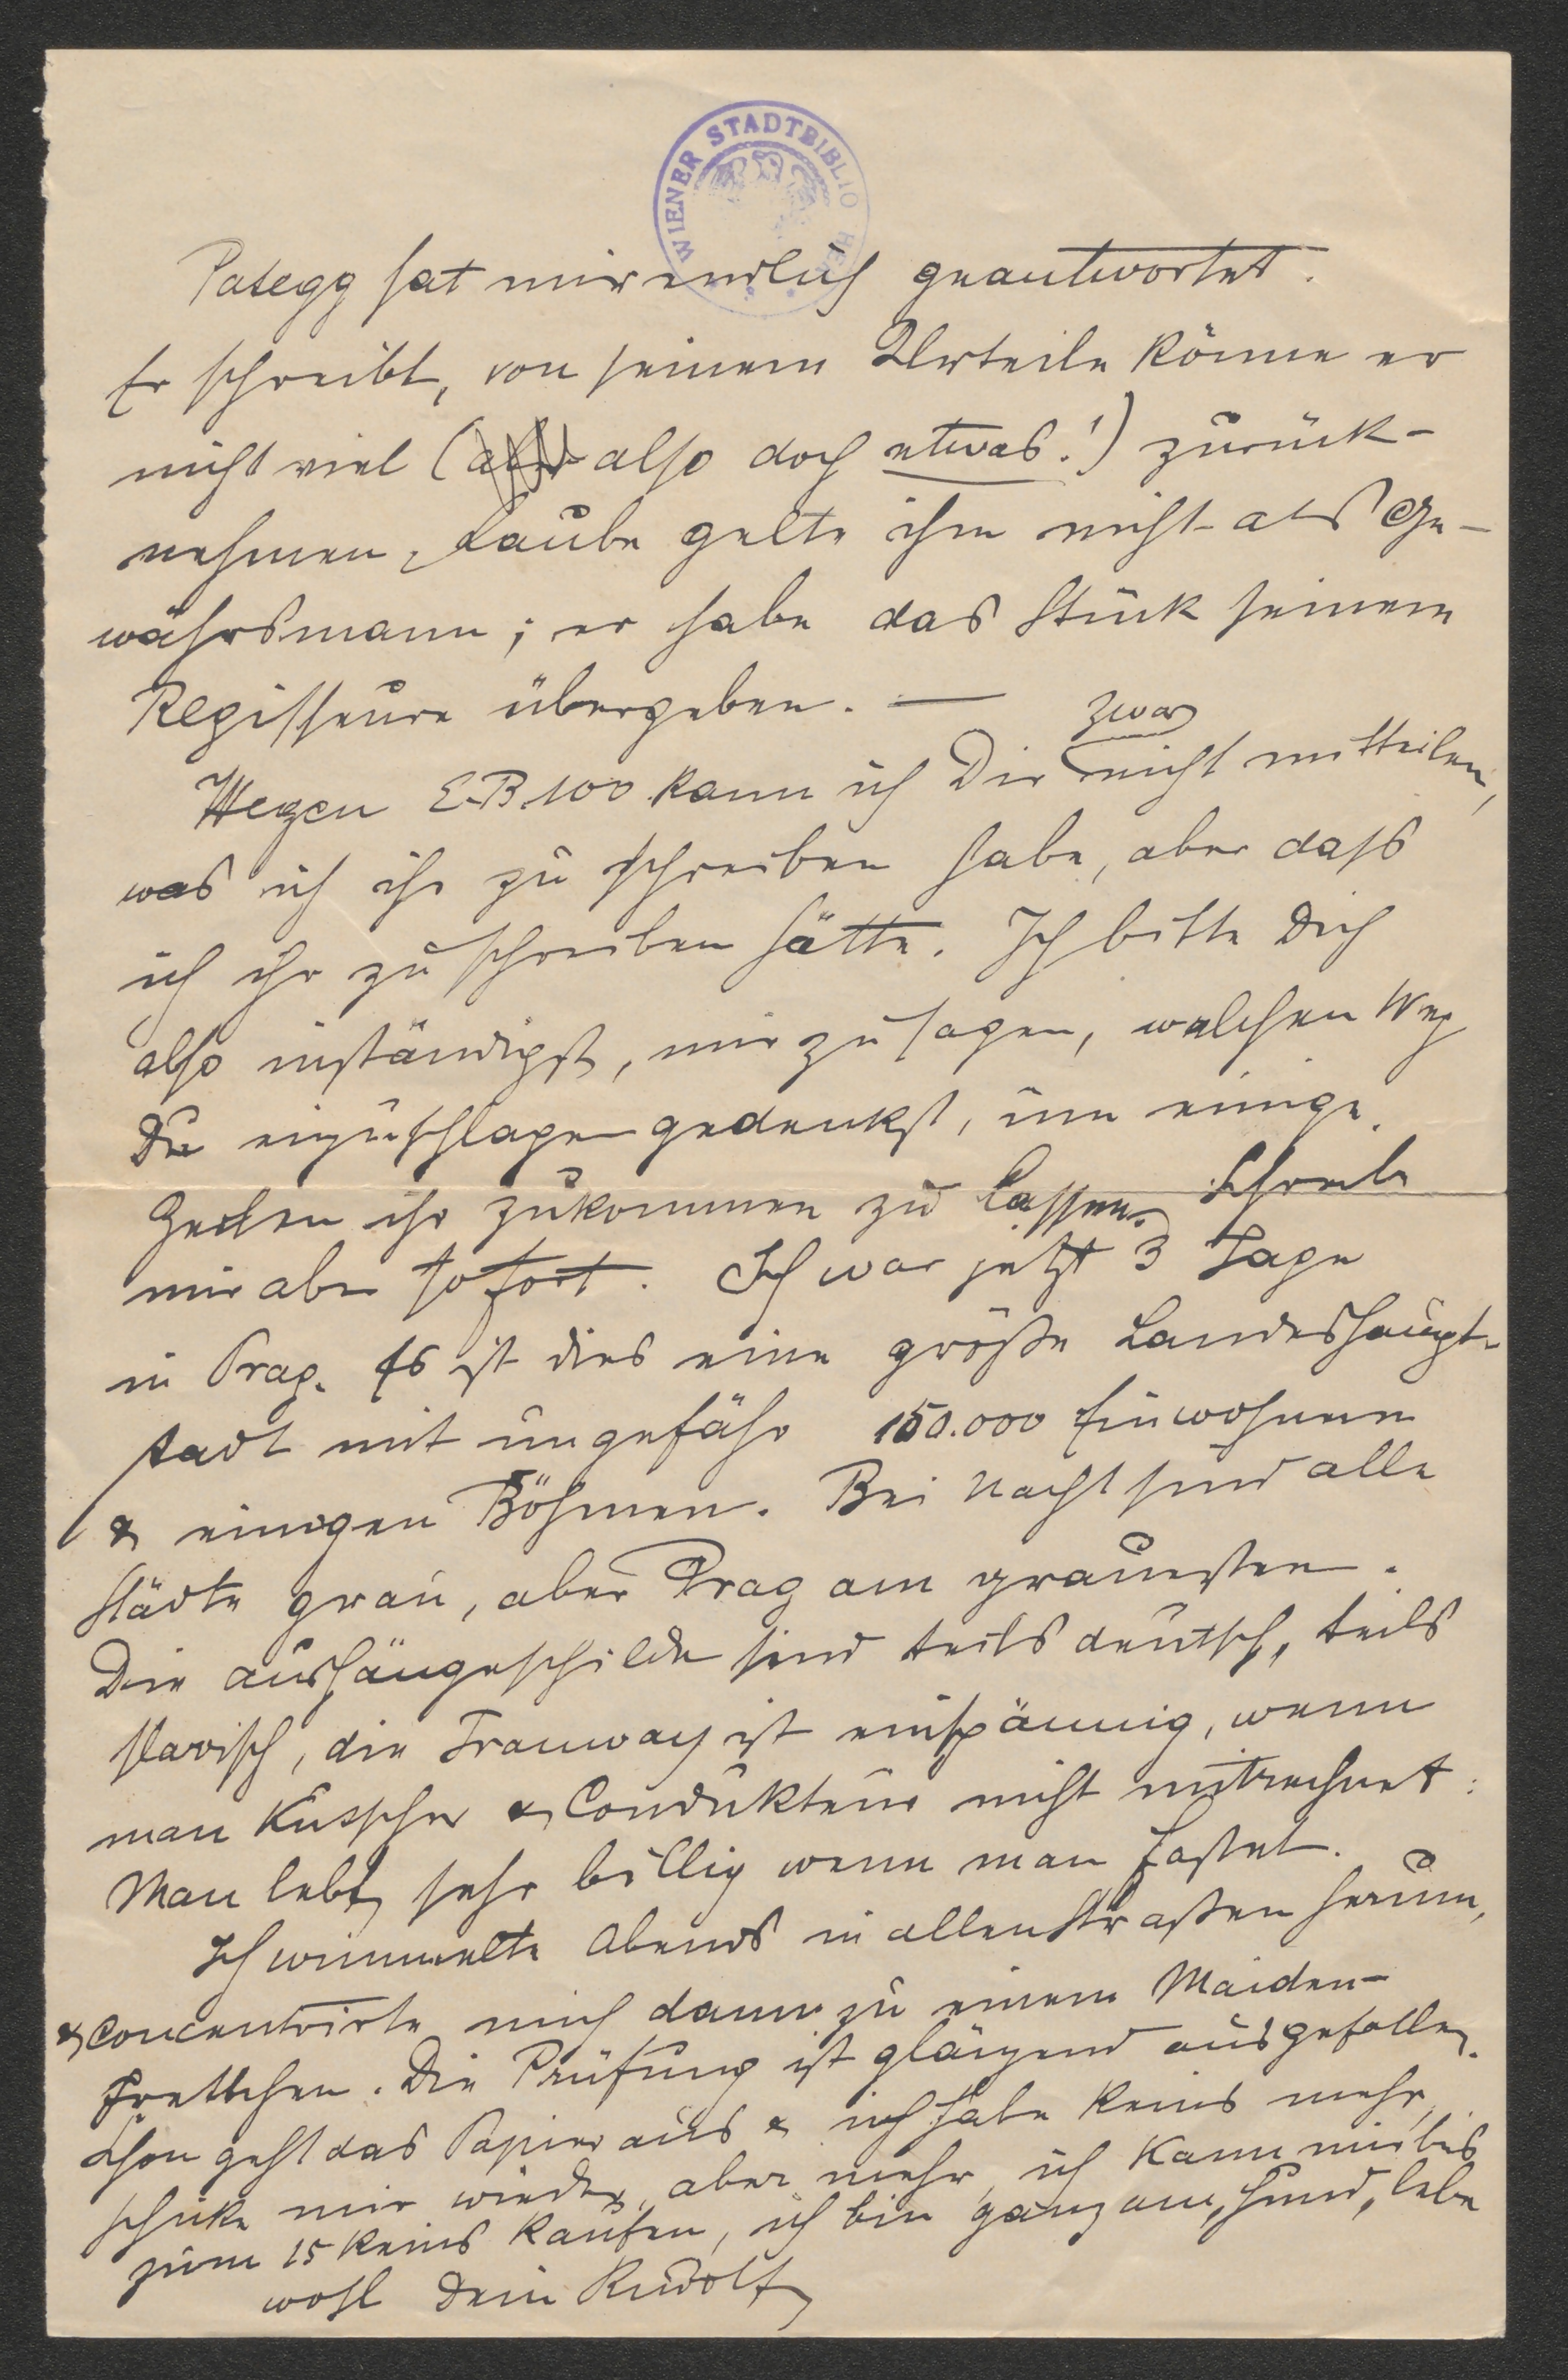 WIENER STADTBIBLIOTHEK
Pategg hat mir endlich geantwortet.
Er schreibt, von seinem Urteile könne er
nicht viel (also doch etwas!) zurück-
nehmen, Laube gelte ihm nicht als Ge-
währsmann; er habe das Stück seinem
Regisseure übergeben. —
zwar
Wegen E.B. 100 kann ich Dir nicht mitteilen,
was ich ihr zu schreiben habe, aber dass
ich ihr zu schreiben hätte. Ich bitte Dich
also inständigst, mir zu sagen, welchen Weg
Du einzuschlagen gedenkst, um einige
Zeilen ihr zukommen zu lassen. Schreib
mir aber sofort. Ich war jetzt 3 Tage
in Prag. Es ist dies eine große Landeshaupt-
stadt mit ungefähr 150.000 Einwohnern
& einigen Böhmen. Bei Nacht sind alle
Städte grau, aber Prag am grauesten.
Die Aushängeschilde sind teils deutsch, teils
slavisch, die Tramway ist einspännig, wenn
man Kutscher & Condukteur nicht mitrechnet:
Man lebt sehr billig wenn man fastet.
Ich wimmelte Abends in allen Straßen herum,
& concentrirte mich dann zu einem Maiden-
Die Prüfung ist glänzend ausgefallen.
Schon geht das Papier aus & ich habe keins mehr,
schicke mir wieder, aber mehr, ich kann mir bis
zum 15 keins kaufen, ich bin ganz am „Hund„ lebe
wohl Dein Rudolf